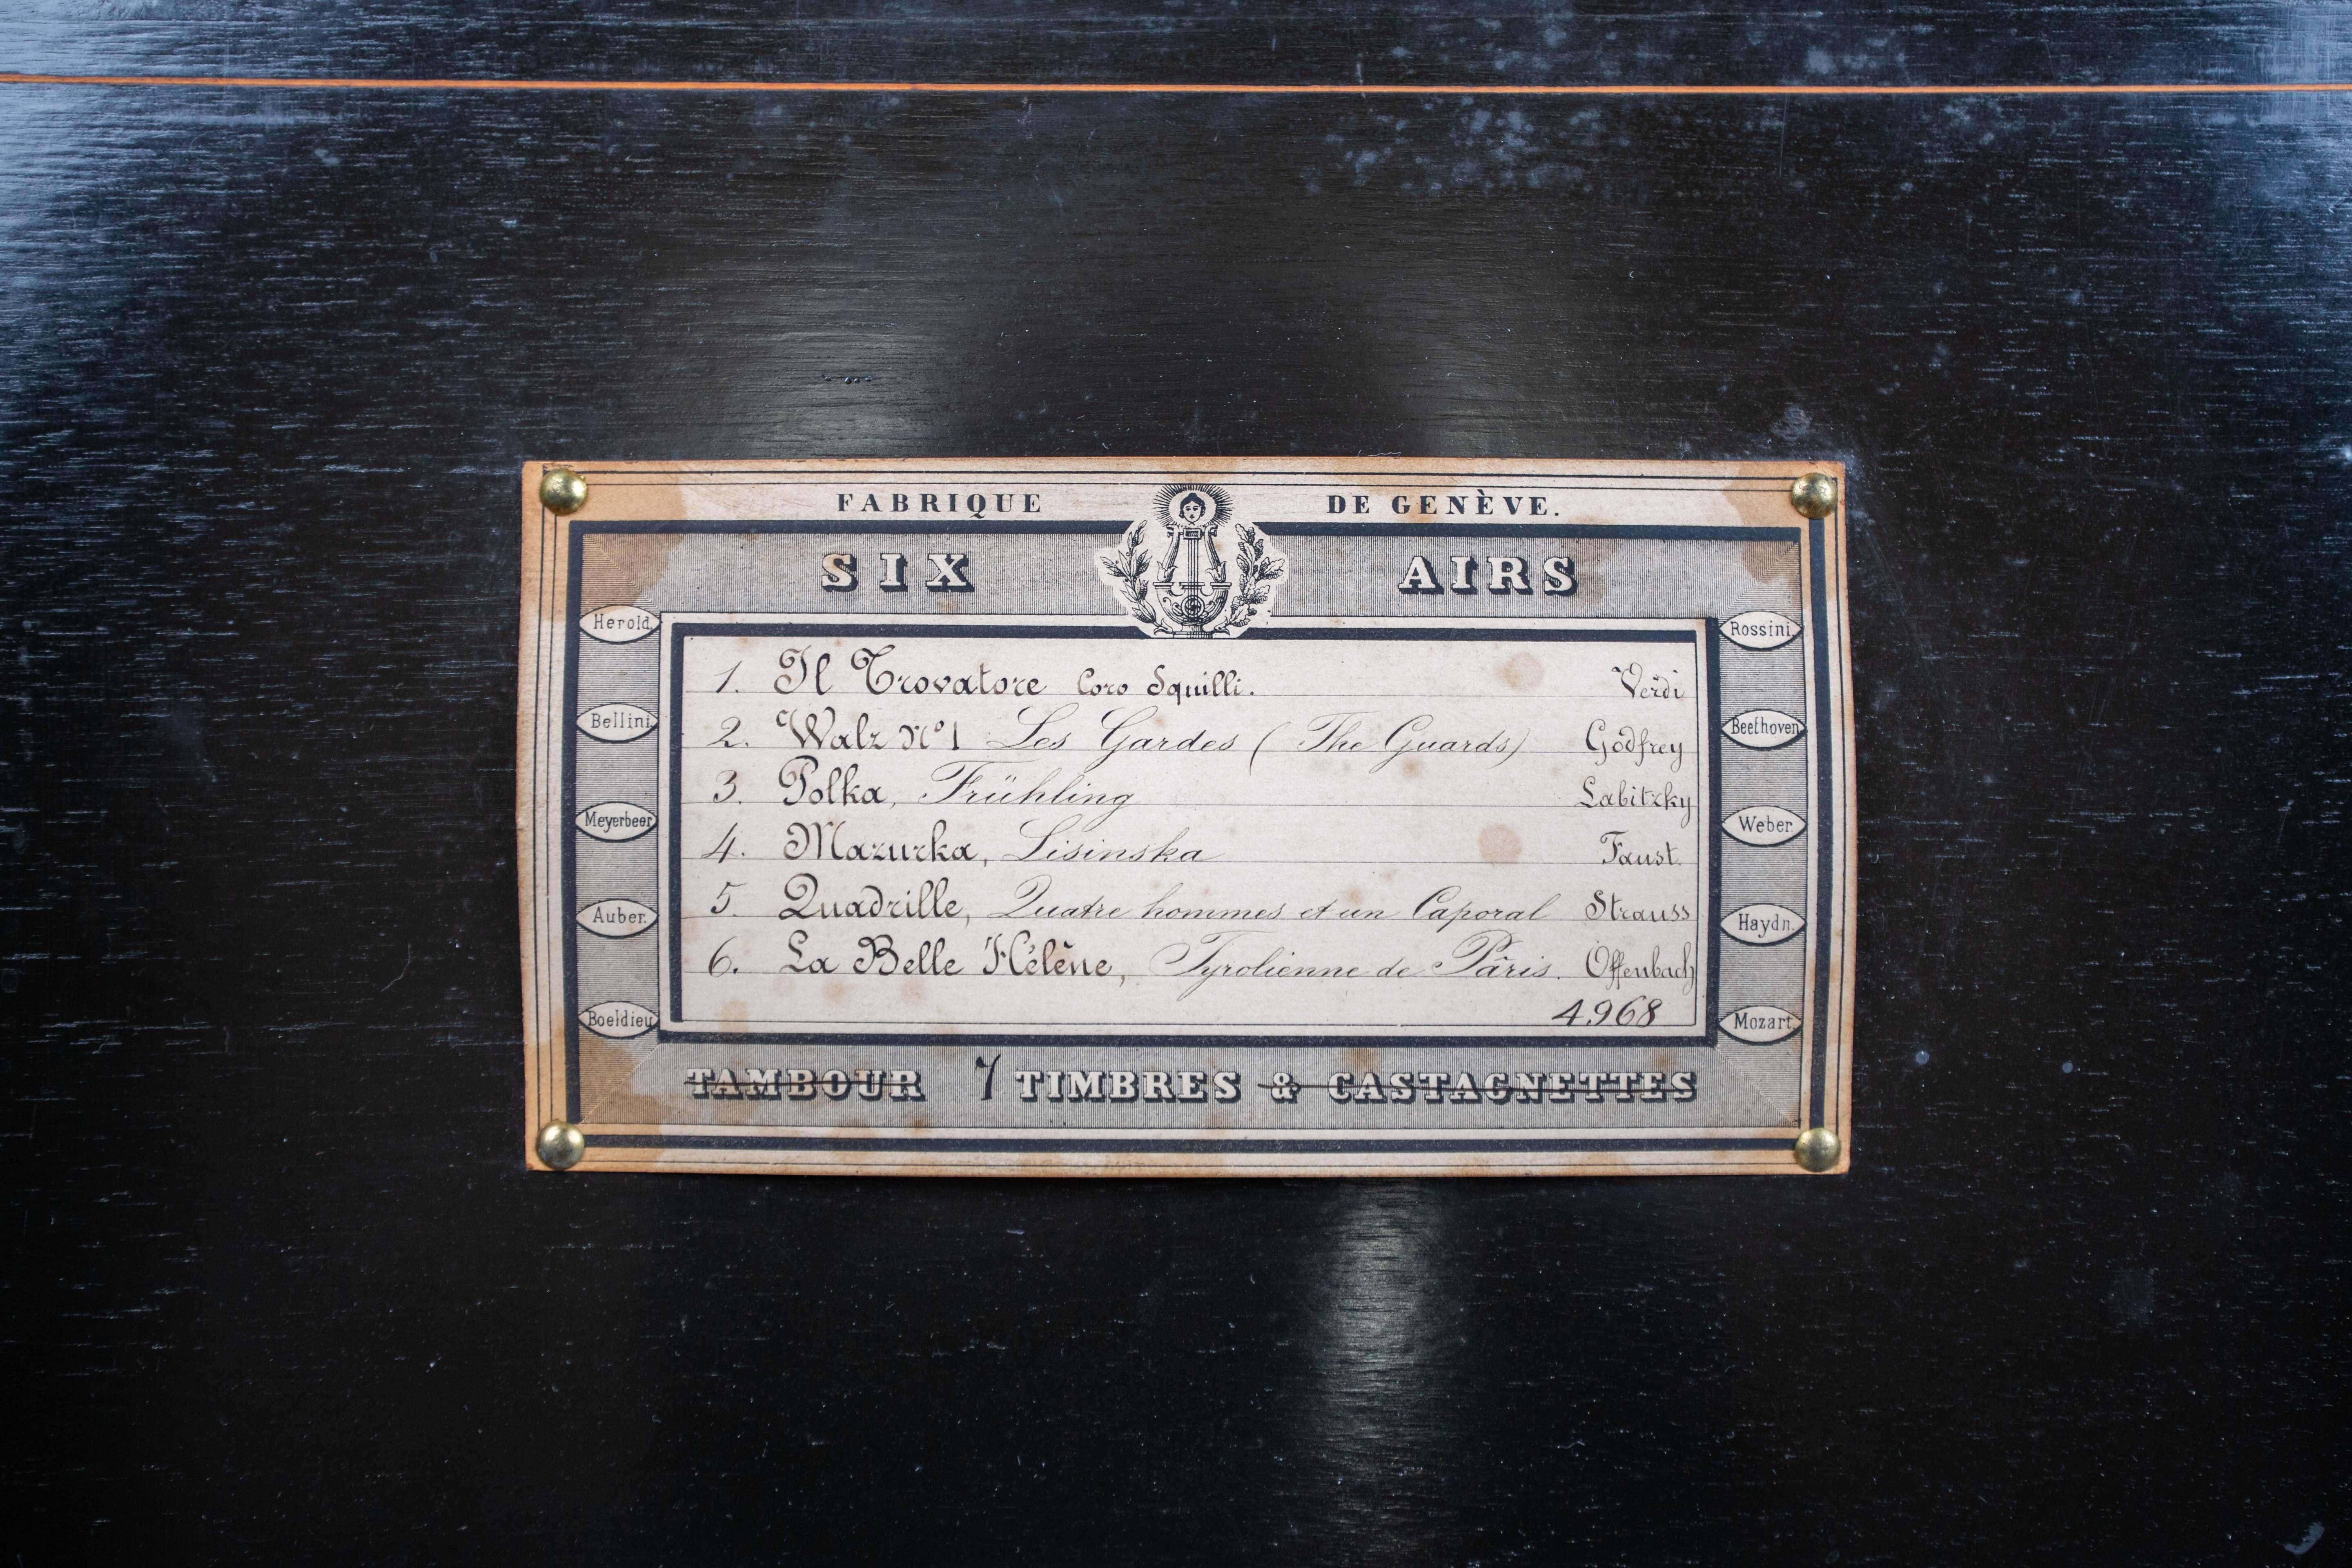 FABRIQUE DE GENÈVE.
SIX AIRS
Herold.
Bellini.
Meyerbeer
Auber.
Boeldieu
1. Il Trovatore Coro Squilli. Verdi
2. Walz N°1 Les Gardes (The Guards) Godfrey
3. Polka, Frühling Labitzky
4. Mazurka, Lisinska Faust.
5. Quadrille, Quatre hommes et un Caporal Strauss
6. La Belle Hélène, Tyrolienne de Pâris. Offenbach
4968
Rossini.
Beethoven
Weber.
Haydn.
Mozart.
TAMBOUR 7 TIMBRES & CASTAGNETTES